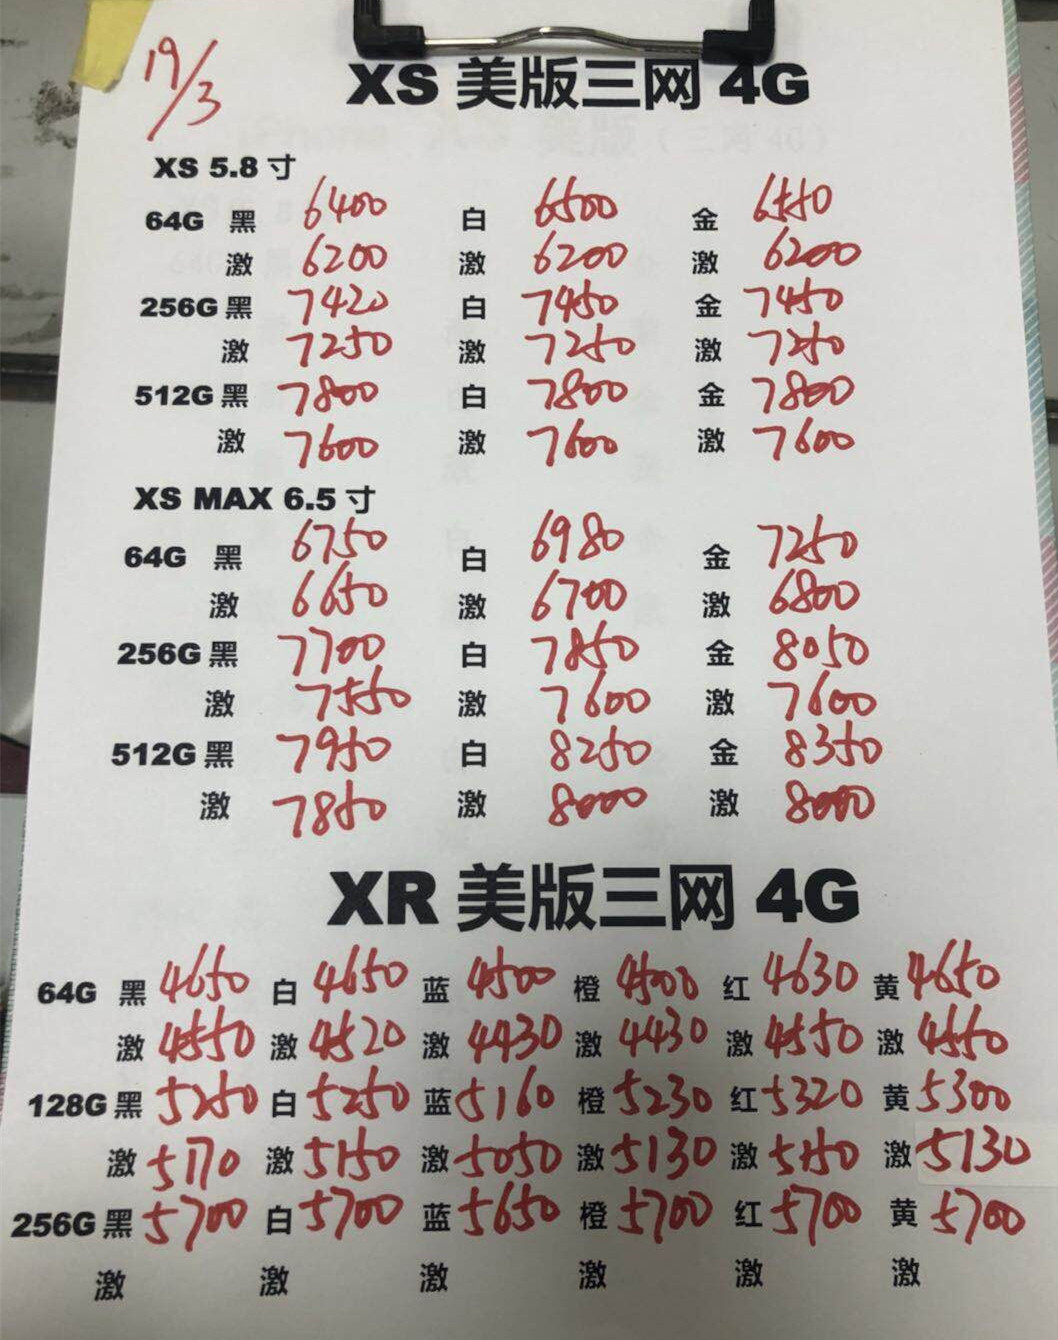 19/3
XS 美版三网 4G
XS 5.8 寸
64G 黑 6400 白 6500 金 6550
激 6200 激 6200 激 6200
256G 黑 7420 白 7450 金 7450
激 7250 激 7250 激 7250
512G 黑 7800 白 7800 金 7800
激 7600 激 7600 激 7600
XS MAX 6.5 寸
64G 黑 6750 白 6980 金 7250
激 6650 激 6700 激 6800
256G 黑 7700 白 7850 金 8050
激 7550 激 7600 激 7600
512G 黑 7950 白 8250 金 8350
激 7850 激 8000 激 8000
XR 美版三网 4G
64G 黑 4650 白 4650 蓝 4500 橙 4500 红 4630 黄 4650
激 4550 激 4520 激 4430 激 4430 激 4550 激 4550
128G 黑 5250 白 5250 蓝 5160 橙 5230 红 5320 黄 5300
激 5170 激 5150 激 5050 激 5130 激 5150 激 5130
256G 黑 5700 白 5700 蓝 5650 橙 5700 红 5700 黄 5700
激 激 激 激 激 激